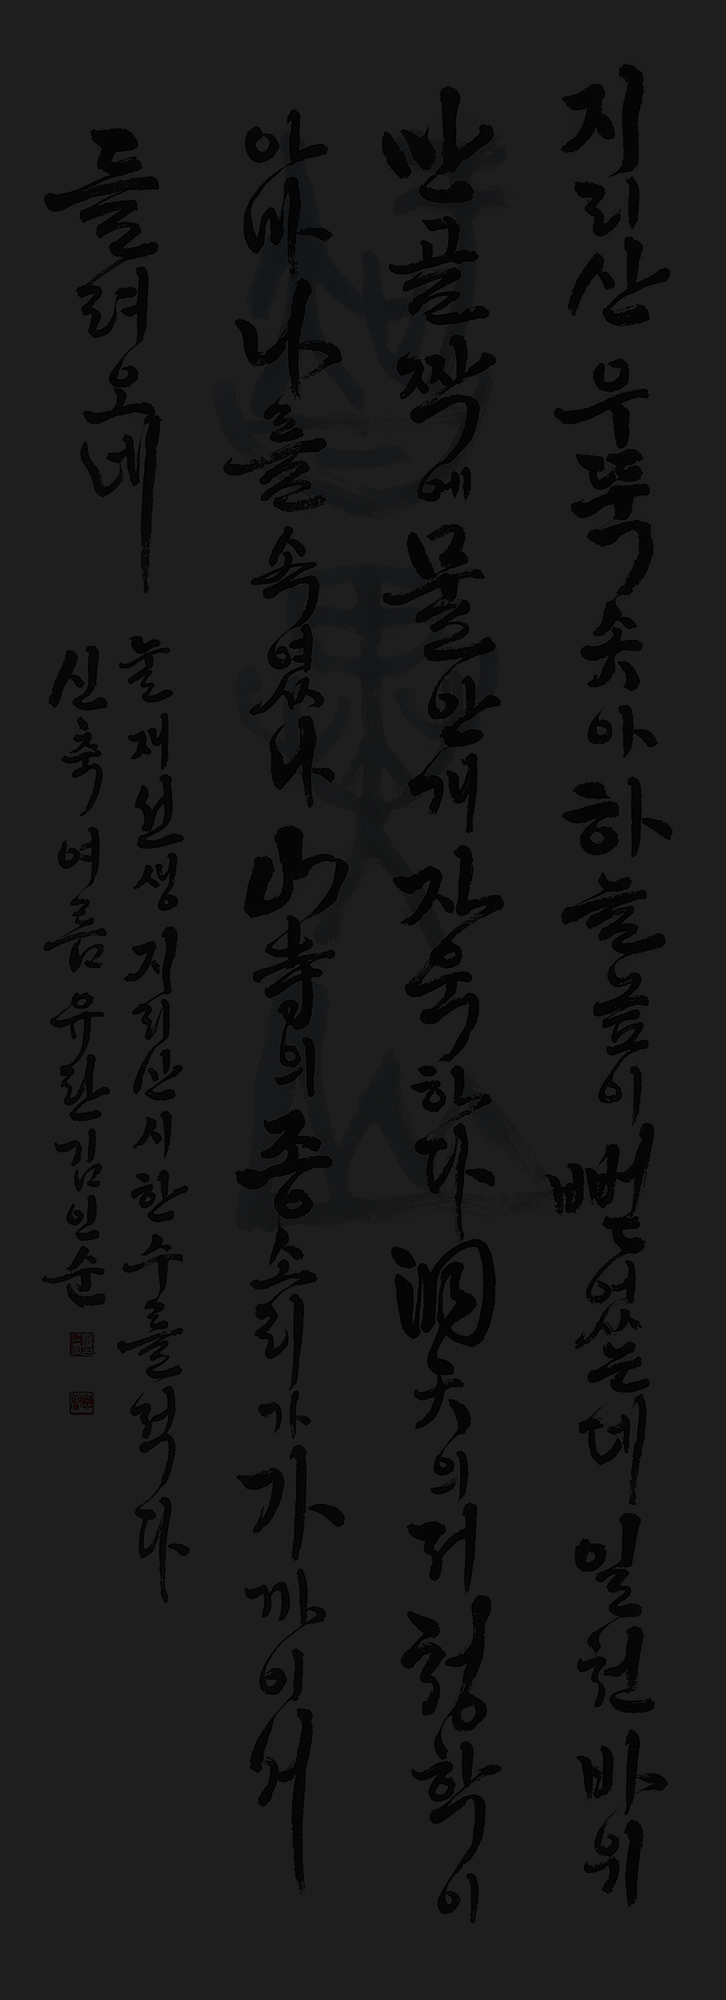 지리산 우뚝 솟아 하늘 높이 뻗었는데 일천 바위
만 골짝에 물안개 자욱하다 洞天의 저 청학이
아마 나를 속였나 山寺의 종소리가 가까이서
들려오네
눌재선생 지리산시 한수를 적다
신축여름 유란 김인순